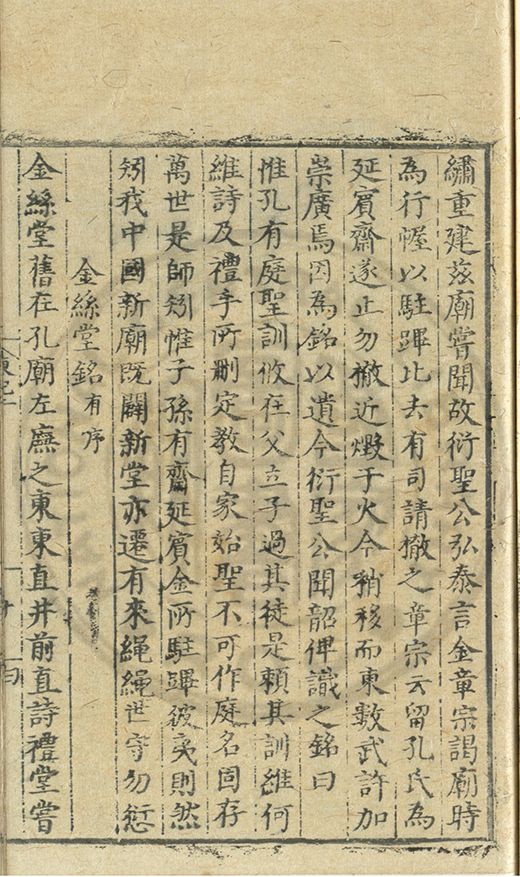 繡重建茲廟嘗聞故衍聖公弘泰言金章宗謁廟時
為行幄以駐蹕比去有司請撤之章宗云留孔氏為
延賓齋遂止勿撤近燬于火今稍移而東數武許加
崇廣焉因為銘以遺今衍聖公聞韶俾識之銘曰
惟孔有庭聖訓攸在父立子過其徒是賴其訓維何
維詩及禮手所刪定教自家始聖不可作庭名固存
萬世是師矧惟子孫有齋延賓金所駐蹕彼夷則然
矧我中國新廟既闢新堂亦遷有來繩繩世守勿愆
金絲堂銘有序
金絲堂舊在孔廟左廡之東東直井前直詩禮堂嘗